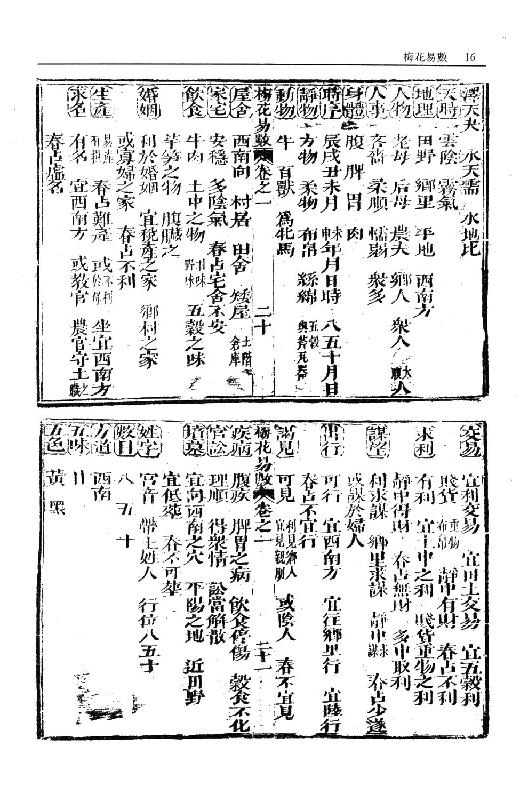 梅花易數 16
澤天夬 水天需 水地比
天時 雲陰 霧氣
地理 田野 鄉里 平地 西南方
人物 老母 后母 農夫 鄉人 衆人 大腹人
人事 吝嗇 柔順 懦弱 衆多
身體 腹 脾 胃 肉
時序 辰戌丑未月 未申年月日時 八五十月日
靜物 方物 柔物 布帛 絲綿 五穀 輿斧瓦器
動物 牛 百獸 爲牝馬
梅花易數 卷之一 二十
屋舍 西南向 村居 田舍 矮屋 土階 倉庫
家宅 安穩 多陰氣 春占宅舍不安
飲食 牛肉 土中之物 甘味 野味 五穀之味
芋笋之物 腹臟之
婚姻 利於婚姻 宜稅產之家 鄉村之家
或寡婦之家 春占不利
生產 易產 春占難產 有損 或不利於母 坐宜西南方
求名 有名 宜西南方 或教官 農官守土之職
春占虛名
交易 宜利交易 宜田土交易 宜五穀利
賤貨 重物 布帛 靜中有財 春占不利
求利 有利 宜土中之利 賤貨重物之利
靜中得財 春占無財 多中取利
謀望 利求謀 鄉里求謀 靜中求謀 春占少遂
或謀於婦人
出行 可行 宜西南方 宜往鄉里行 宜陸行
春占不宜行
謁見 可見 利見鄉人 宜見親朋 或陰人 春不宜見
梅花易數 卷之一 二十一
疾病 腹疾 脾胃之病 飲食停傷 穀食不化
官訟 理順 得衆情 訟當解散
墳墓 宜向西南之穴 平陽之地 近田野
宜低葬 春不可葬
姓字 宮音 帶土姓人 行位八五十
數目 八 五 十
方道 西南
五味 甘
五色 黃 黑